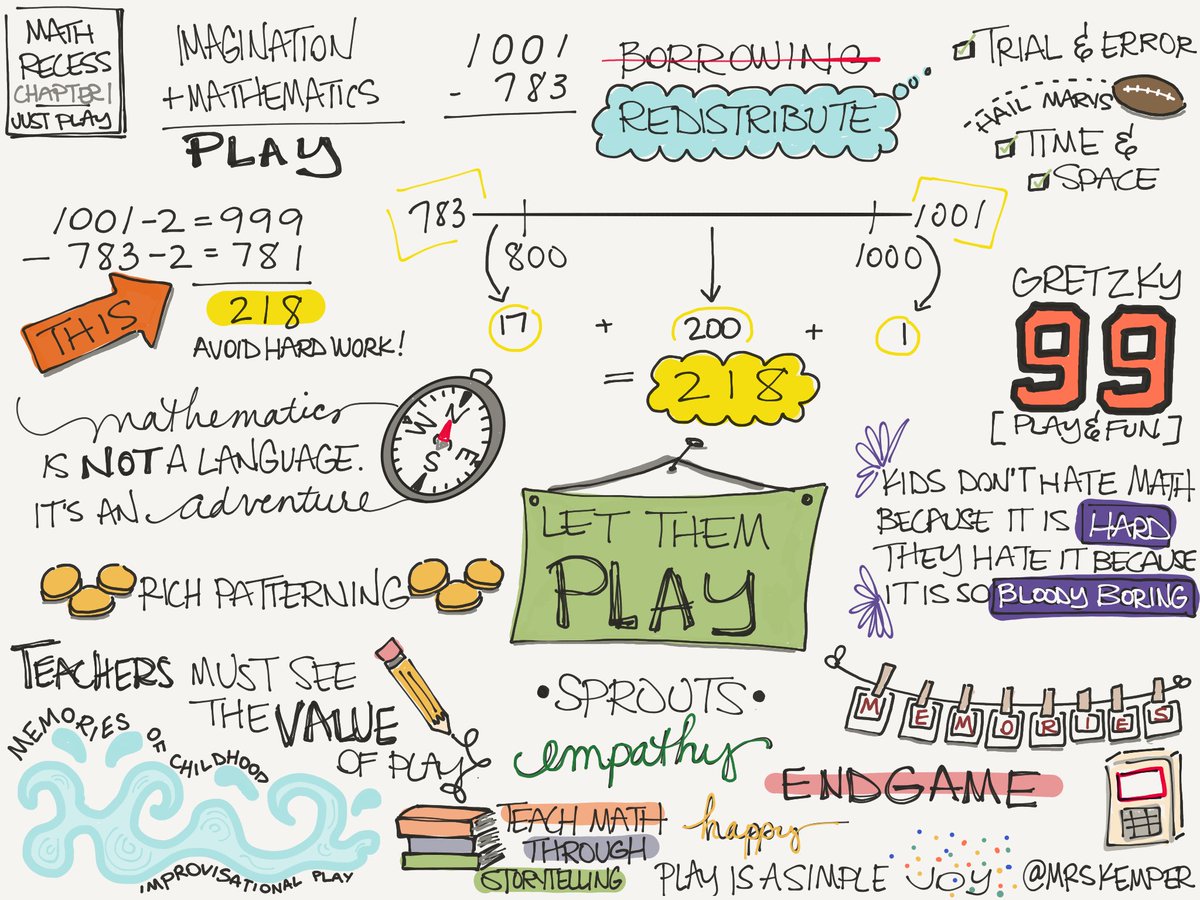 MATH
RECESS
CHAPTER 1
JUST PLAY
IMAGINATION
+MATHEMATICS
PLAY
1001
- 783
BORROWING
REDISTRIBUTE
TRIAL & ERROR
HAIL MARYS
TIME &
SPACE
1001-2=999
- 783-2=781
218
THIS
AVOID HARD WORK!
783
1001
800
1000
17 + 200 + 1
= 218
GRETZKY
99
[PLAY & FUN]
mathematics
IS NOT A LANGUAGE.
IT'S AN adventure
N
W
E
S
LET THEM
PLAY
KIDS DON'T HATE MATH
BECAUSE IT IS HARD
THEY HATE IT BECAUSE
IT IS SO BLOODY BORING
RICH PATTERNING
TEACHERS MUST SEE
THE VALUE
OF PLAY.
MEMORIES OF CHILDHOOD
IMPROVISATIONAL PLAY
•SPROUTS•
empathy
MEMORIES
ENDGAME
TEACH MATH
THROUGH
STORYTELLING
happy
PLAY IS A SIMPLE JOY
@MRSKEMPER